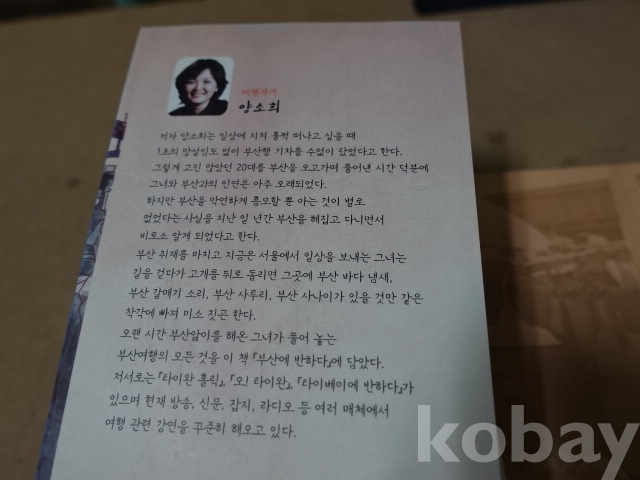 여행작가
양소희
저자 양소희는 일상에 지쳐 훌쩍 떠나고 싶을 때
1초의 망설임도 없이 부산행 기차를 수없이 탔었다고 한다.
그렇게 고민 많았던 20대를 부산을 오고가며 풀어낸 시간 덕분에
그녀와 부산과의 인연은 아주 오래되었다.
하지만 부산을 막연하게 흠모할 뿐 아는 것이 별로
없었다는 사실을 지난 일 년간 부산을 헤집고 다니면서
비로소 알게 되었다고 한다.
부산 취재를 마치고 지금은 서울에서 일상을 보내는 그녀는
길을 걷다가 고개를 뒤로 돌리면 그곳에 부산 바다 냄새,
부산 갈매기 소리, 부산 사투리, 부산 사나이가 있을 것만 같은
착각에 빠져 미소 짓곤 한다.
오랜 시간 부산앓이를 해온 그녀가 풀어 놓는
부산여행의 모든 것을 이 책 『부산에 반하다』에 담았다.
저서로는 『타이완 홀릭』, 『오! 타이완』, 『타이베이에 반하다』가
있으며 현재 방송, 신문, 잡지, 라디오 등 여러 매체에서
여행 관련 강연을 꾸준히 해오고 있다.
kobay